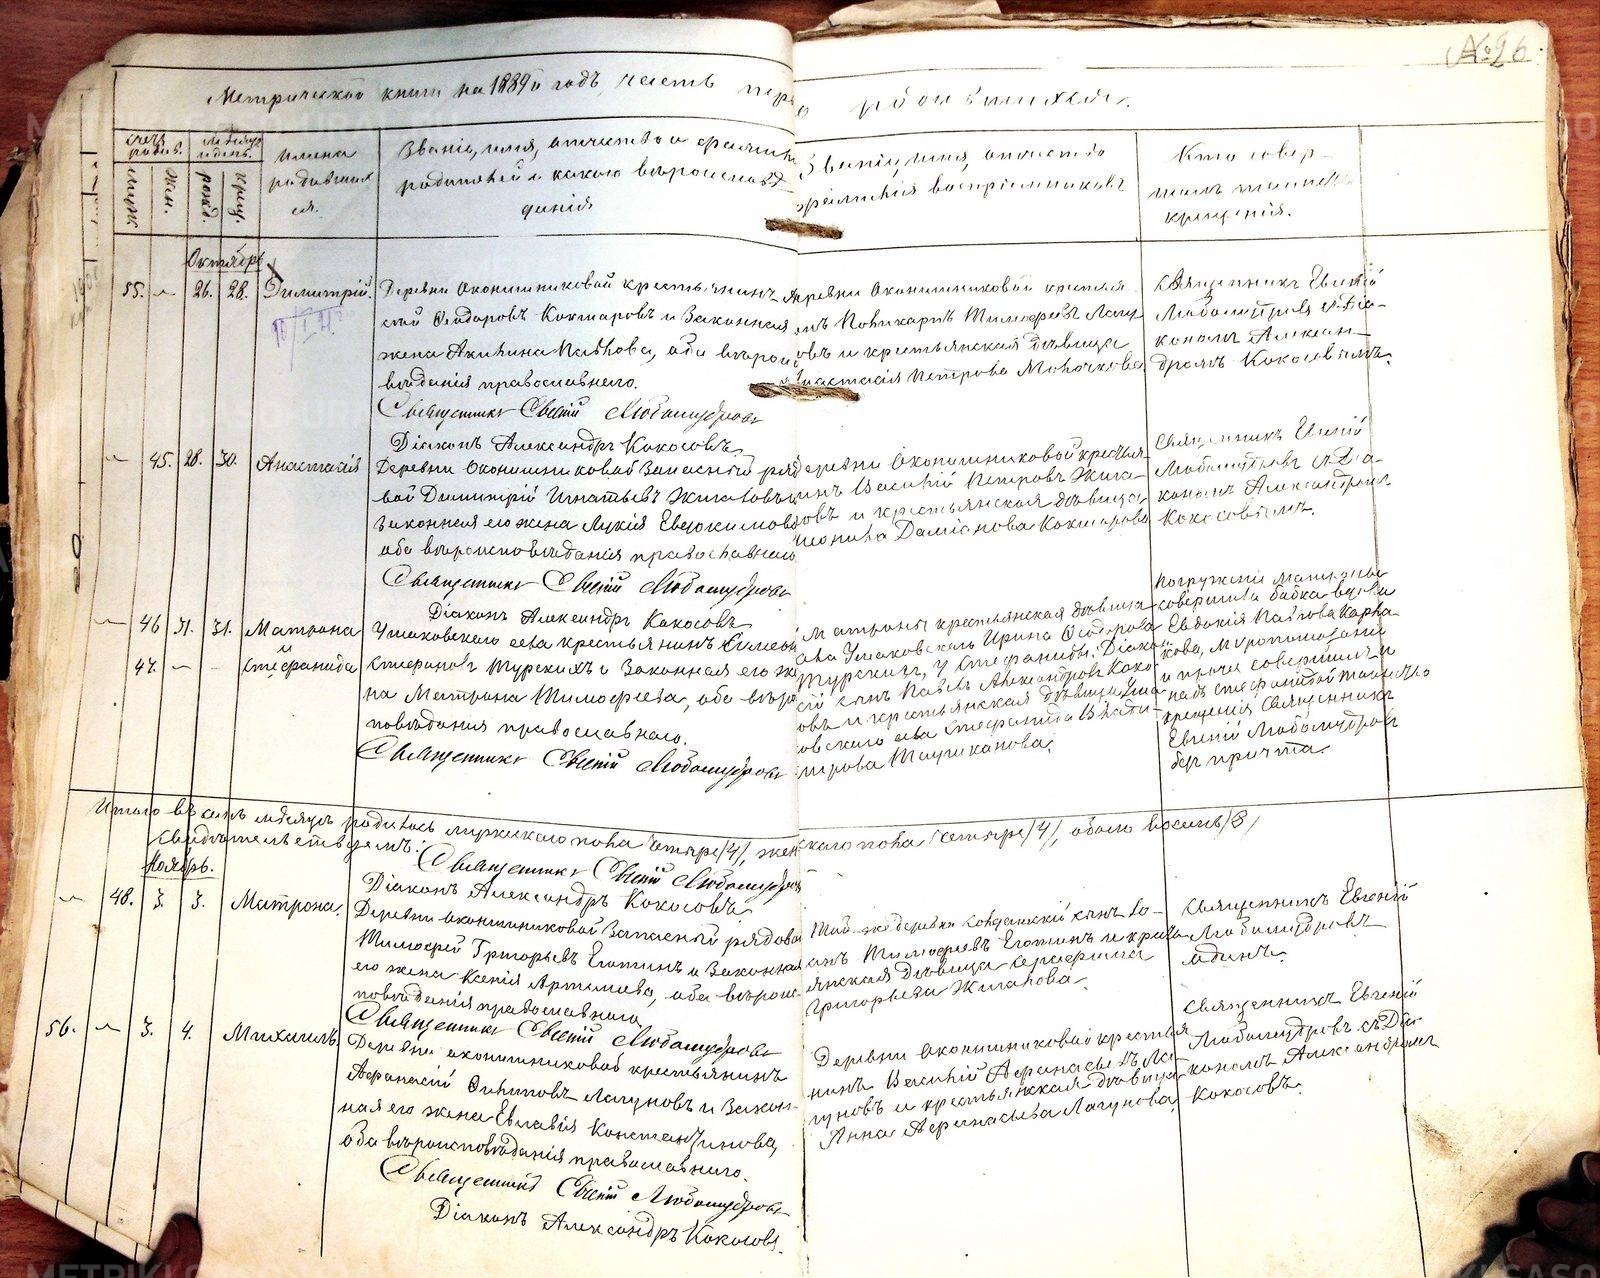 №26
Метрической книги на 1889й годъ, часть пер
о родившихся.
Счетъ родив.
муж.
жен.
Мѣсяцъ и день.
рожд.
крещ.
Имена
родивших
ся.
Званіе, имя, отчество и фамилія
родителей и какого вѣроисповѣ
данія
Званіе, имя, отчество
фамилія воспріемниковъ
Кто совер-
шалъ таинство
крещенія.
Октябрь
55. 26. 28. Димитрій.
Деревни Оконишниковой крестьянинъ
Ѳеодоровъ Кокшаровъ и законная
жена Акилина Павлова, оба вѣроис
вѣданія православнаго.
Священникъ Евгеній Любомудровъ
Діаконъ Александръ Кокосовъ
деревни Оконишниковой крестья
нинъ Поликарпъ Тимофеевъ Лагу
новъ и крестьянская дѣвица
Анастасія Петрова Молочкова
Священникъ Евгеній
Любомудровъ съ Діа-
кономъ Алексан-
дромъ Кокосовымъ.
45. 28. 30. Анастасія
Деревни Оконишниковой Запасный рядо
вой Димитрій Игнатьевъ Жигаловъ и
законная его жена Лукія Евдокимова
оба вѣроисповѣданія православнаго
Священникъ Евгеній Любомудровъ
Діаконъ Александръ Кокосовъ
деревни Оконишниковой крестья
нинъ Василій Петровъ Жига
ловъ и крестьянская дѣвица
Даміанова Кокшарова
Священникъ Евгеній
Любомудровъ съ Діа-
кономъ Александромъ
Кокосовымъ.
46 31. 31. Матрона
и
47. Стефанида
Ушаковскаго села крестьянинъ Симеонъ
Стефановъ Турскихъ и законная его же
на Матрона Тимофеева, оба вѣрои
повѣданія православнаго.
Священникъ Евгеній Любомудровъ
Матроны крестьянская дѣвица
села Ушаковскаго Ирина Ѳеодорова
Турскихъ, у Стефаниды: Діако
скій сынъ Павелъ Александровъ Коко
совъ и крестьянская дѣвица Уша
ковскаго села Стефанида Влади
мірова Таушканова.
Погруженіе Матроны
совершила бабка вдова
Евдокія Павлова Карпа
кова, муропомазаніе
и прочее совершилъ и
надъ Стефанидой таинство
крещенія Священникъ
Евгеній Любомудровъ
безъ причта.
Итого въ семъ мѣсяцѣ родилось мужескаго пола четыре /4/, женскаго пола четыре /4/, обоего восемь /8/
свидѣтельствуемъ:
Священникъ Евгеній Любомудровъ
Діаконъ Александръ Кокосовъ
Ноябрь.
48. 3. 3. Матрона.
Деревни Оконишниковой Запасный рядовой
Тимофей Григорьевъ Еготинъ и законная
его жена Ксенія Артемиева, оба вѣроис-
повѣданія православнаго
Священникъ Евгеній Любомудровъ
Той же деревни Солдатскій сынъ Іо-
аннъ Тимофеевъ Еготинъ и кресть
янская дѣвица Серафима
Григорьева Жигалова.
Священникъ Евгеній
Любомудровъ
одинъ.
56. 3. 4. Михаилъ
Деревни Оконишниковой крестьянинъ
Афанасій Осиповъ Лагуновъ и закон-
ная его жена Евлавія Константинова,
оба вѣроисповѣданія православнаго.
Священникъ Евгеній Любомудровъ
Діаконъ Александръ Кокосовъ.
Деревни Оконишниковой крестья
нинъ Василій Афанасьевъ Ла-
гуновъ и крестьянская дѣвица
Анна Афанасьева Лагунова
Священникъ Евгеній
Любомудровъ съ Діа-
кономъ Александромъ
Кокосовъ.